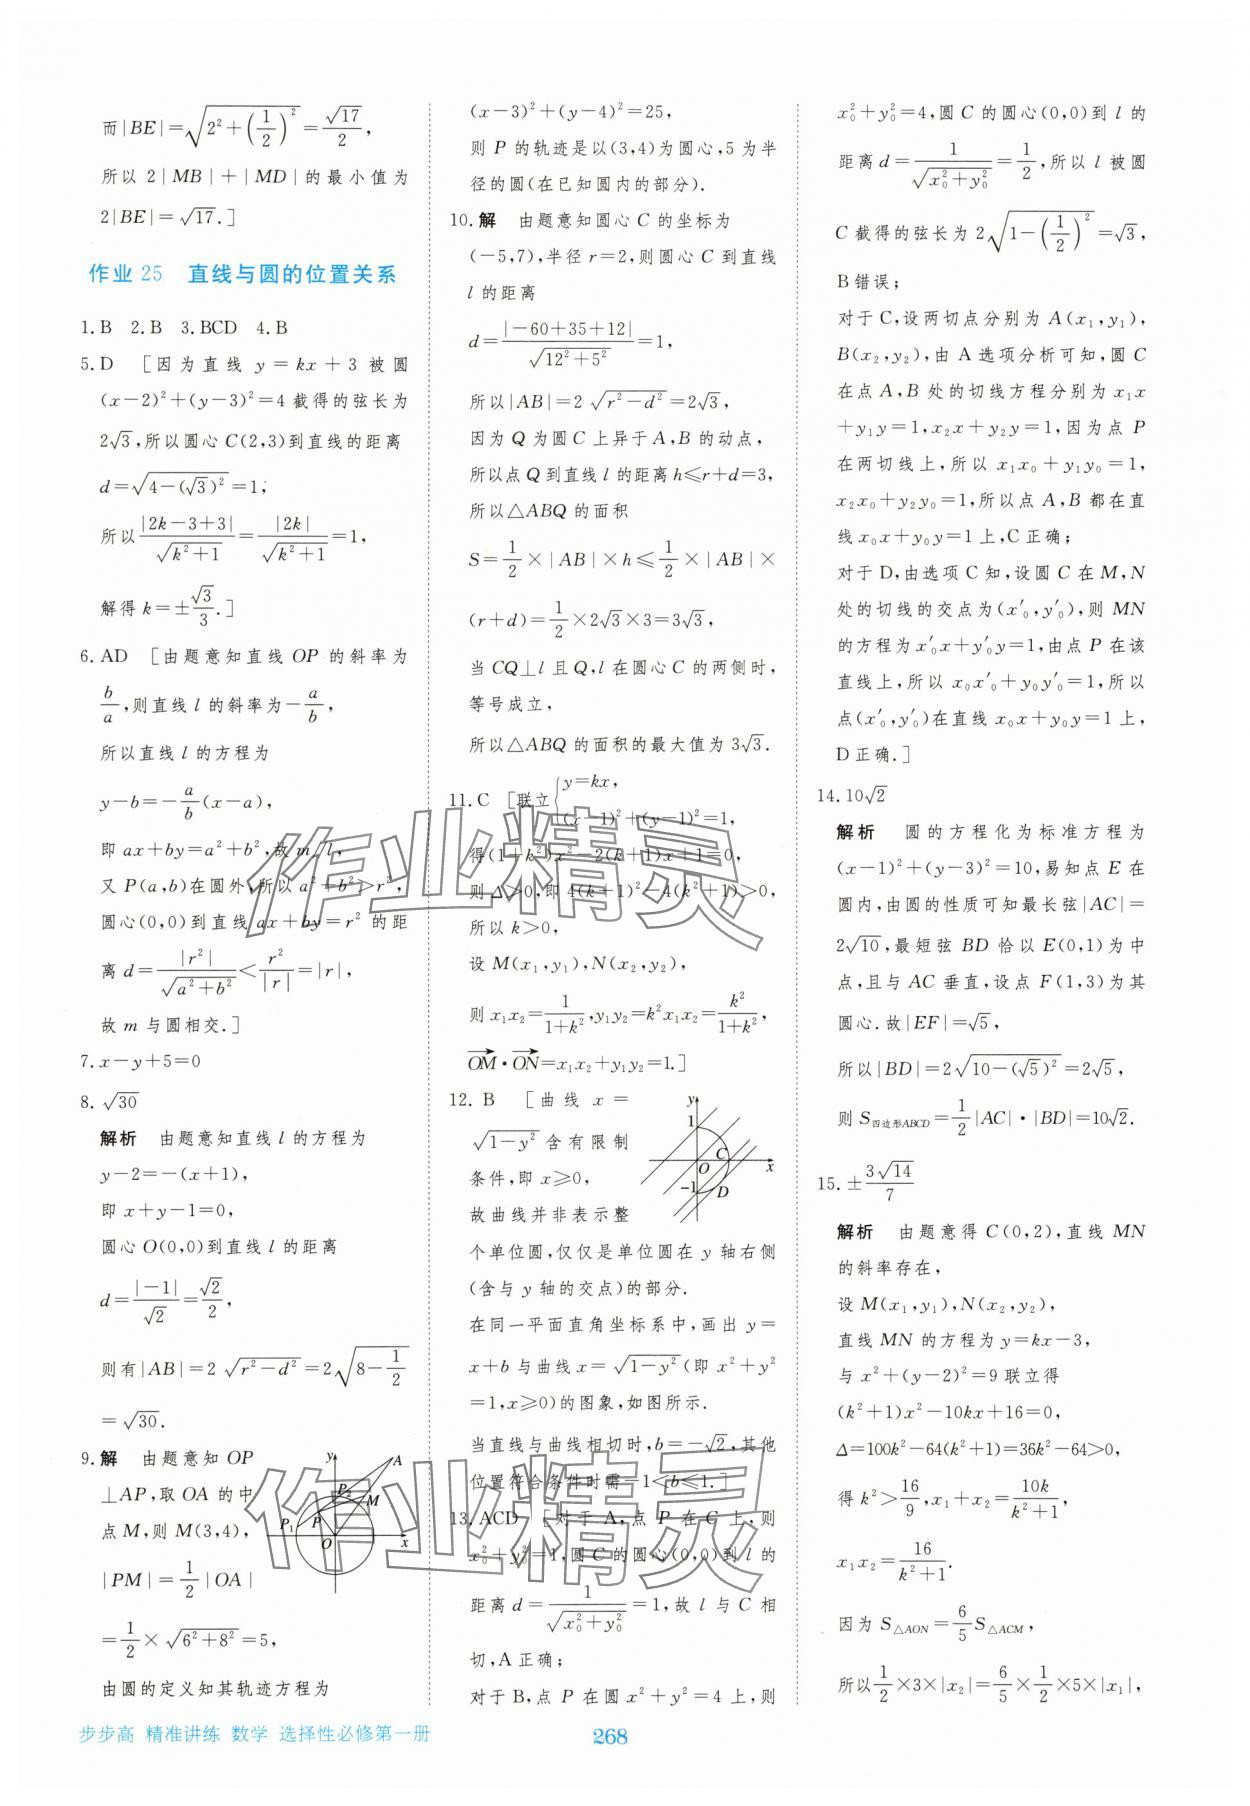 而|BE|=√(2²+(1/2)²)=√17/2,
所以 2|MB|+|MD|的最小值为
2|BE|=√17.]
作业 25 直线与圆的位置关系
1.B 2.B 3.BCD 4.B
5.D [因为直线 y=kx+3 被圆
(x-2)²+(y-3)²=4 截得的弦长为
2√3,所以圆心 C(2,3)到直线的距离
d=√(4-(√3)²)=1,
所以|2k-3+3|/√(k²+1)=|2k|/√(k²+1)=1,
解得 k=±√3/3.]
6.AD [由题意知直线 OP 的斜率为
b/a,则直线 l 的斜率为-a/b,
所以直线 l 的方程为
y-b=-a/b(x-a),
即 ax+by=a²+b²,故 m∥l,
又 P(a,b)在圆外,所以 a²+b²>r²,
圆心(0,0)到直线 ax+by=r² 的距
离 d=|r²|/√(a²+b²)<r²/|r|=|r|,
故 m 与圆相交.]
7.x-y+5=0
8.√30
解析 由题意知直线 l 的方程为
y-2=-(x+1),
即 x+y-1=0,
圆心 O(0,0)到直线 l 的距离
d=|-1|/√2=√2/2,
则有|AB|=2√(r²-d²)=2√(8-1/2)
=√30.
9.解 由题意知 OP
⊥AP,取 OA 的中
点 M,则 M(3,4),
|PM|=1/2|OA|
=1/2×√(6²+8²)=5,
y A P₂ M P₁ P O x
由圆的定义知其轨迹方程为
(x-3)²+(y-4)²=25,
则 P 的轨迹是以(3,4)为圆心,5 为半
径的圆(在已知圆内的部分).
10.解 由题意知圆心 C 的坐标为
(-5,7),半径 r=2,则圆心 C 到直线
l 的距离
d=|-60+35+12|/√(12²+5²)=1,
所以|AB|=2√(r²-d²)=2√3,
因为 Q 为圆 C 上异于 A,B 的动点,
所以点 Q 到直线 l 的距离 h≤r+d=3,
所以△ABQ 的面积
S=1/2×|AB|×h≤1/2×|AB|×
(r+d)=1/2×2√3×3=3√3,
当 CQ⊥l 且 Q,l 在圆心 C 的两侧时,
等号成立,
所以△ABQ 的面积的最大值为 3√3.
11.C [联立{y=kx,
(x-1)²+(y-1)²=1,
得(1+k²)x²-2(k+1)x+1=0,
则 Δ>0,即 4(k+1)²-4(k²+1)>0,
所以 k>0,
设 M(x₁,y₁),N(x₂,y₂),
则 x₁x₂=1/(1+k²),y₁y₂=k²x₁x₂=k²/(1+k²),
OM·ON=x₁x₂+y₁y₂=1.]
12.B [曲线 x=
√(1-y²)含有限制
条件,即 x≥0,
故曲线并非表示整
y 1 O C x -1 D
个单位圆,仅仅是单位圆在 y 轴右侧
(含与 y 轴的交点)的部分.
在同一平面直角坐标系中,画出 y=
x+b 与曲线 x=√(1-y²)(即 x²+y²
=1,x≥0)的图象,如图所示.
当直线与曲线相切时,b=-√2,其他
位置符合条件时需-1<b≤1.]
13.ACD [对于 A,点 P 在 C 上,则
x₀²+y₀²=1,圆 C 的圆心(0,0)到 l 的
距离 d=1/√(x₀²+y₀²)=1,故 l 与 C 相
切,A 正确;
对于 B,点 P 在圆 x²+y²=4 上,则
x₀²+y₀²=4,圆 C 的圆心(0,0)到 l 的
距离 d=1/√(x₀²+y₀²)=1/2,所以 l 被圆
C 截得的弦长为 2√(1-(1/2)²)=√3,
B 错误;
对于 C,设两切点分别为 A(x₁,y₁),
B(x₂,y₂),由 A 选项分析可知,圆 C
在点 A,B 处的切线方程分别为 x₁x
+y₁y=1,x₂x+y₂y=1,因为点 P
在两切线上,所以 x₁x₀+y₁y₀=1,
x₂x₀+y₂y₀=1,所以点 A,B 都在直
线 x₀x+y₀y=1 上,C 正确;
对于 D,由选项 C 知,设圆 C 在 M,N
处的切线的交点为(x′₀,y′₀),则 MN
的方程为 x′₀x+y′₀y=1,由点 P 在该
直线上,所以 x₀x′₀+y₀y′₀=1,所以
点(x′₀,y′₀)在直线 x₀x+y₀y=1 上,
D 正确.]
14.10√2
解析 圆的方程化为标准方程为
(x-1)²+(y-3)²=10,易知点 E 在
圆内,由圆的性质可知最长弦|AC|=
2√10,最短弦 BD 恰以 E(0,1)为中
点,且与 AC 垂直,设点 F(1,3)为其
圆心.故|EF|=√5,
所以|BD|=2√(10-(√5)²)=2√5,
则 S四边形ABCD=1/2|AC|·|BD|=10√2.
15.±3√14/7
解析 由题意得 C(0,2),直线 MN
的斜率存在,
设 M(x₁,y₁),N(x₂,y₂),
直线 MN 的方程为 y=kx-3,
与 x²+(y-2)²=9 联立得
(k²+1)x²-10kx+16=0,
Δ=100k²-64(k²+1)=36k²-64>0,
得 k²>16/9,x₁+x₂=10k/(k²+1),
x₁x₂=16/(k²+1).
因为 S△AON=6/5 S△ACM,
所以 1/2×3×|x₂|=6/5×1/2×5×|x₁|,
步步高 精准讲练 数学 选择性必修第一册
268
作业精灵
作业精灵